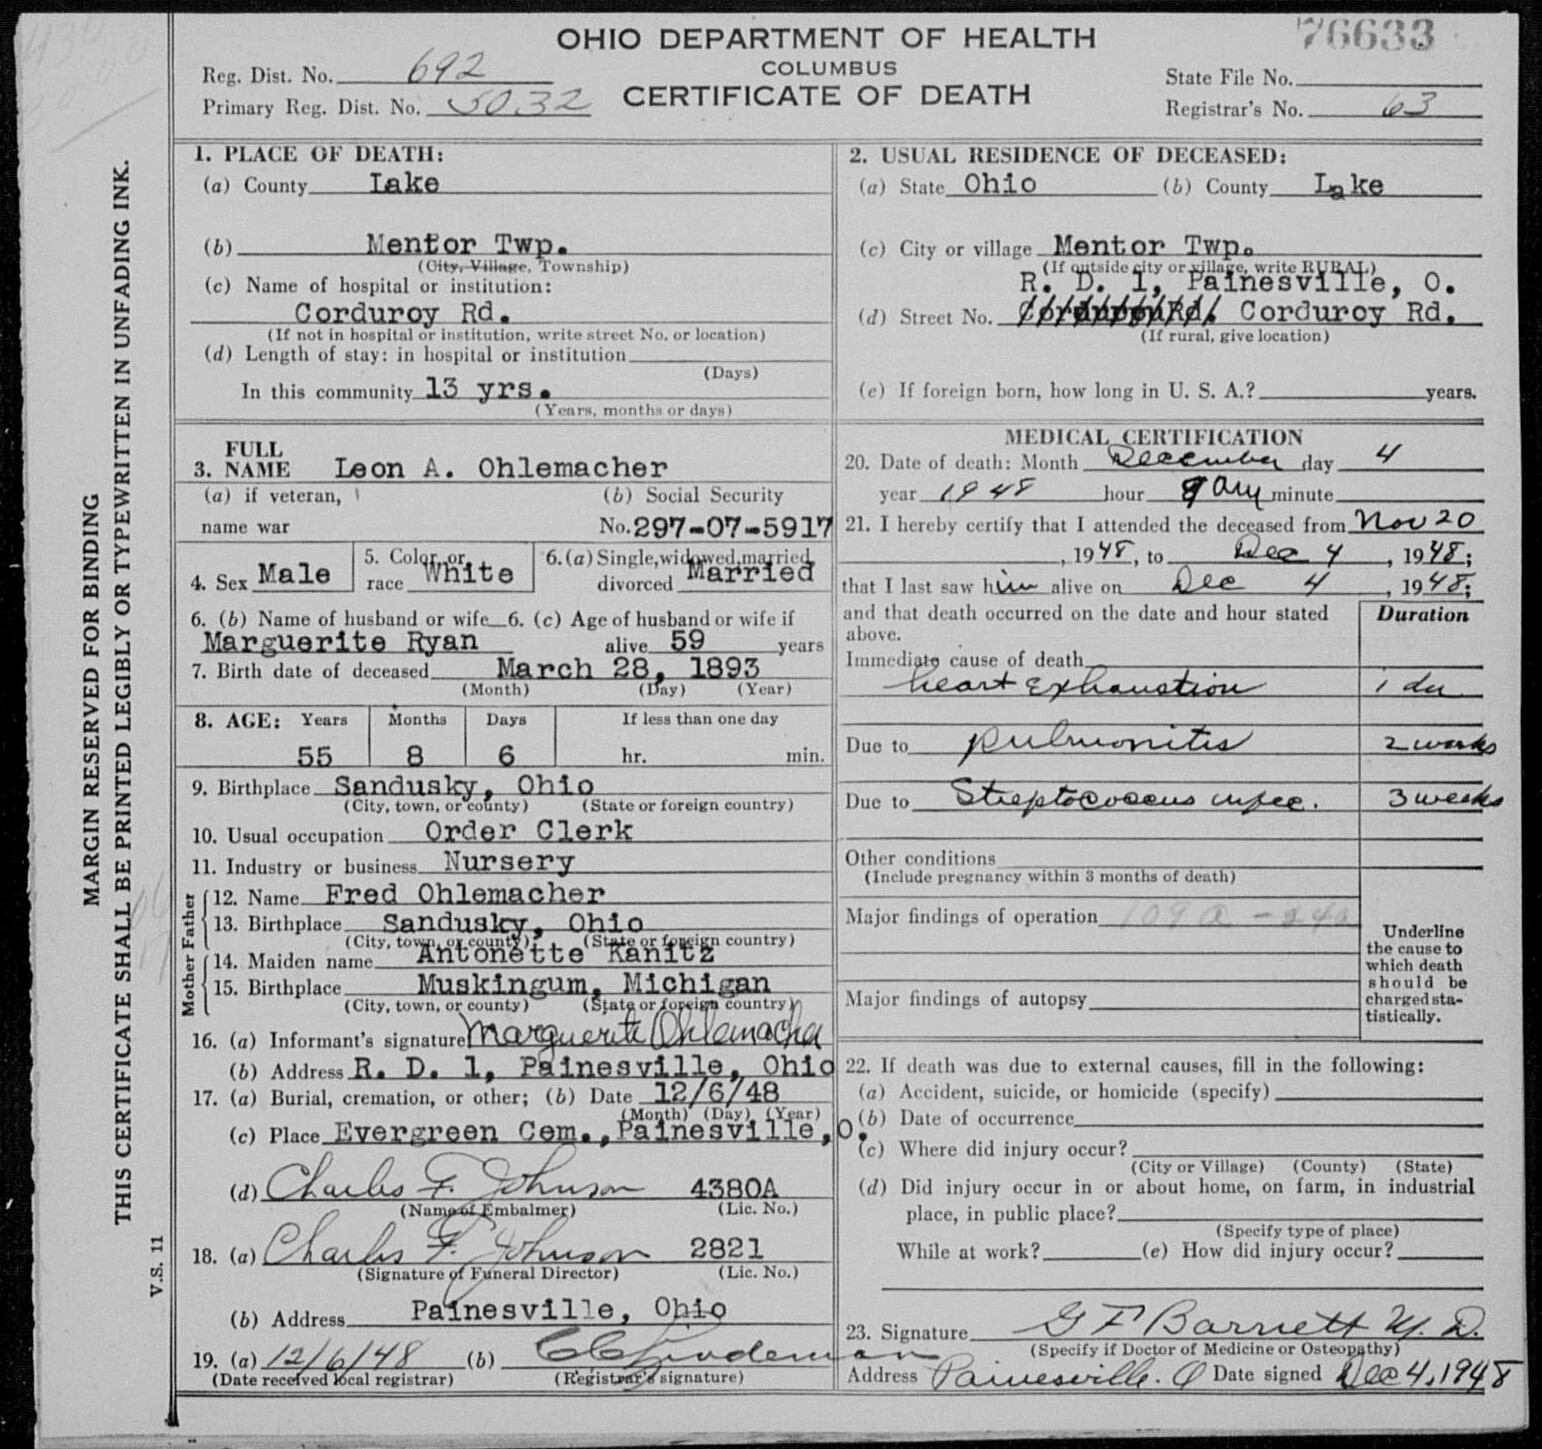 76633
OHIO DEPARTMENT OF HEALTH
COLUMBUS
CERTIFICATE OF DEATH
Reg. Dist. No. 692
Primary Reg. Dist. No. 5032
State File No.
Registrar's No. 63
MARGIN RESERVED FOR BINDING
THIS CERTIFICATE SHALL BE PRINTED LEGIBLY OR TYPEWRITTEN IN UNFADING INK.
V.S. 11
1. PLACE OF DEATH:
(a) County Lake
(b) Mentor Twp.
(City, Village, Township)
(c) Name of hospital or institution:
Corduroy Rd.
(If not in hospital or institution, write street No. or location)
(d) Length of stay: in hospital or institution
(Days)
In this community 13 yrs.
(Years, months or days)
2. USUAL RESIDENCE OF DECEASED:
(a) State Ohio (b) County Lake
(c) City or village Mentor Twp.
(If outside city or village, write RURAL)
R. D. 1, Painesville, O.
(d) Street No. Corduroy Rd.
(If rural, give location)
(e) If foreign born, how long in U. S. A.? years.
3. FULL NAME Leon A. Ohlemacher
(a) if veteran, (b) Social Security
name war No. 297-07-5917
4. Sex Male 5. Color or race White 6. (a) Single, widowed, married, divorced Married
6. (b) Name of husband or wife 6. (c) Age of husband or wife if
Marguerite Ryan alive 59 years
7. Birth date of deceased March 28, 1893
(Month) (Day) (Year)
8. AGE: Years Months Days If less than one day
55 8 6 hr. min.
9. Birthplace Sandusky, Ohio
(City, town, or county) (State or foreign country)
10. Usual occupation Order Clerk
11. Industry or business Nursery
Father
12. Name Fred Ohlemacher
13. Birthplace Sandusky, Ohio
(City, town, or county) (State or foreign country)
Mother
14. Maiden name Antonette Kanitz
15. Birthplace Muskingum, Michigan
(City, town, or county) (State or foreign country)
16. (a) Informant's signature Marguerite Ohlemacher
(b) Address R. D. 1, Painesville, Ohio
17. (a) Burial, cremation, or other; (b) Date 12/6/48
(Month) (Day) (Year)
(c) Place Evergreen Cem., Painesville, O.
(d) Charles F. Johnson 4380A
(Name of Embalmer) (Lic. No.)
18. (a) Charles F. Johnson 2821
(Signature of Funeral Director) (Lic. No.)
(b) Address Painesville, Ohio
19. (a) 12/6/48 (b)
(Date received local registrar) (Registrar's signature)
MEDICAL CERTIFICATION
20. Date of death: Month December day 4
year 1948 hour 9 am minute
21. I hereby certify that I attended the deceased from Nov 20
, 1948, to Dec 4, 1948;
that I last saw him alive on Dec 4, 1948;
and that death occurred on the date and hour stated above.
Duration
Immediate cause of death
heart exhaustion 1 da
Due to pulmonitis 2 weeks
Due to Streptococcus infec. 3 weeks
Other conditions
(Include pregnancy within 3 months of death)
Major findings of operation 109a
Major findings of autopsy
Underline the cause to which death should be charged statistically.
22. If death was due to external causes, fill in the following:
(a) Accident, suicide, or homicide (specify)
(b) Date of occurrence
(c) Where did injury occur?
(City or Village) (County) (State)
(d) Did injury occur in or about home, on farm, in industrial
place, in public place?
(Specify type of place)
While at work? (e) How did injury occur?
23. Signature G F Barnett M. D.
(Specify if Doctor of Medicine or Osteopathy)
Address Painesville. O Date signed Dec 4, 1948